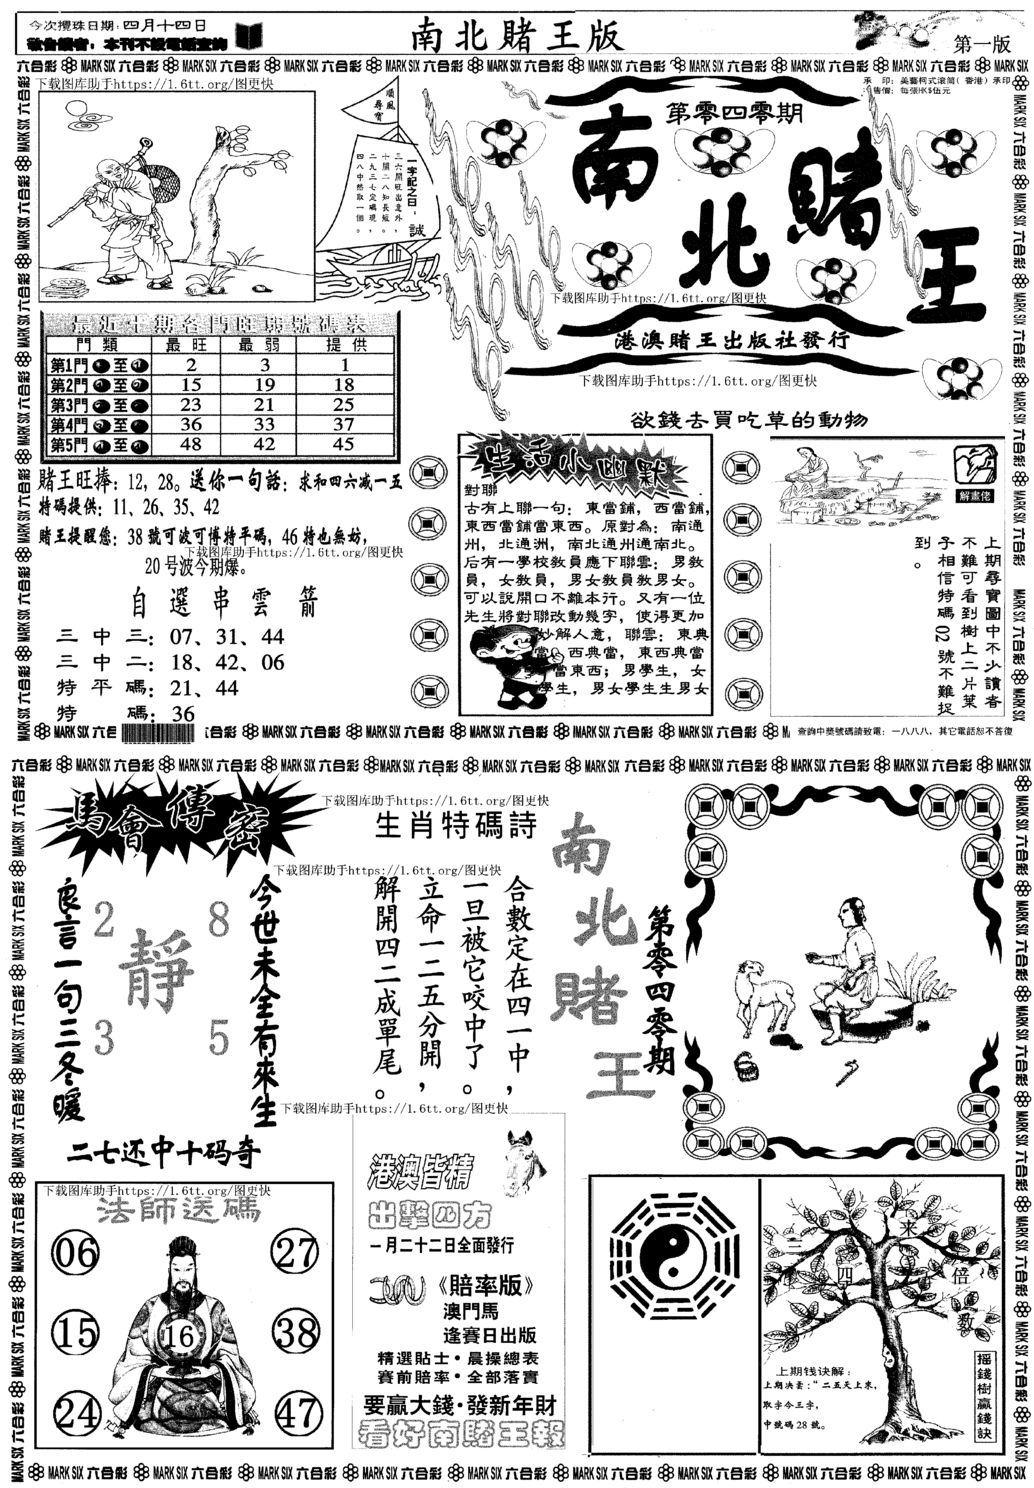 今次攪珠日期:四月十四日
敬告讀者:本刊不設電話查詢
南北賭王版
第一版
六合彩 MARK SIX 六合彩 MARK SIX 六合彩 MARK SIX 六合彩 MARK SIX 六合彩 MARK SIX 六合彩 MARK SIX 六合彩 MARK SIX 六合彩 MARK SIX 六合彩 MARK SIX 六合彩
下载图库助手https://1.6tt.org/图更快
承 印:美藝柯式滾筒(香港)承印
售價:每張HK$伍元
順風尋寶
一字記之曰:誠
三六開旺出意外,
十開二八知長短。
二九三七定碼現,
四八中然取一個。
第零四零期
南北賭王
下载图库助手https://1.6tt.org/图更快
港澳賭王出版社發行
下载图库助手https://1.6tt.org/图更快
欲錢去買吃草的動物
最近十期各門旺弱號碼表
門類 最旺 最弱 提供
第1門 至 2 3 1
第2門 至 15 19 18
第3門 至 23 21 25
第4門 至 36 33 37
第5門 至 48 42 45
賭王旺捧:12,28。送你一句話:求和四六减一五
特碼提供:11、26、35、42
賭王提醒您:38號可波可博特平碼,46特也無妨,
下载图库助手https://1.6tt.org/图更快
20号波今期爆。
自選串雲箭
三中三:07、31、44
三中二:18、42、06
特平碼:21、44
特 碼:36
生活小幽默
對聯
古有上聯一句:東當鋪,西當鋪,
東西當鋪當東西。原對為:南通
州,北通洲,南北通州通南北。
后有一學校教員應下聯雲:男教
員,女教員,男女教員教男女。
可以說開口不離本行。又有一位
先生將對聯改動幾字,使得更加
妙解人意,聯雲:東典
當,西典當,東西典當
當東西;男學生,女
學生,男女學生生男女
解畫佬
上期尋寶圖中不少讀者
不難可看到樹上二片葉
子相信特碼02號不難捉
到。
六合彩 MARK SIX 六合彩 MARK SIX 六合彩 MARK SIX 六合彩 MARK SIX 六合彩 MARK SIX 六合彩
查詢中獎號碼請致電:一八八八,其它電話恕不答復
六合彩 MARK SIX 六合彩 MARK SIX 六合彩 MARK SIX 六合彩 MARK SIX 六合彩 MARK SIX 六合彩 MARK SIX 六合彩 MARK SIX 六合彩 MARK SIX 六合彩 MARK SIX
馬會傳密
下载图库助手https://1.6tt.org/图更快
今世未全有來生
良言一句三冬暖
2 8
靜
3 5
二七还中十码奇
生肖特碼詩
下载图库助手https://1.6tt.org/图更快
合數定在四一中,
一旦被它咬中了。
立命一二五分開,
解開四二成單尾。
下载图库助手https://1.6tt.org/图更快
南北賭王
第零四零期
下载图库助手https://1.6tt.org/图更快
法師送碼
06 27
15 16 38
24 47
港澳皆精
出擊四方
一月二十二日全面發行
《賠率版》
澳門馬
逢賽日出版
精選貼士·晨操總表
賽前賠率·全部落實
要贏大錢·發新年財
看好南賭王報
三四来倍数
上期钱诀解:
上期决叁:“二五天上来,
取字今三字,
中號碼28號。
摇錢樹贏錢訣
MARK SIX 六合彩 MARK SIX 六合彩 MARK SIX 六合彩 MARK SIX 六合彩 MARK SIX 六合彩 MARK SIX 六合彩 MARK SIX 六合彩 MARK SIX 六合彩 MARK SIX 六合彩